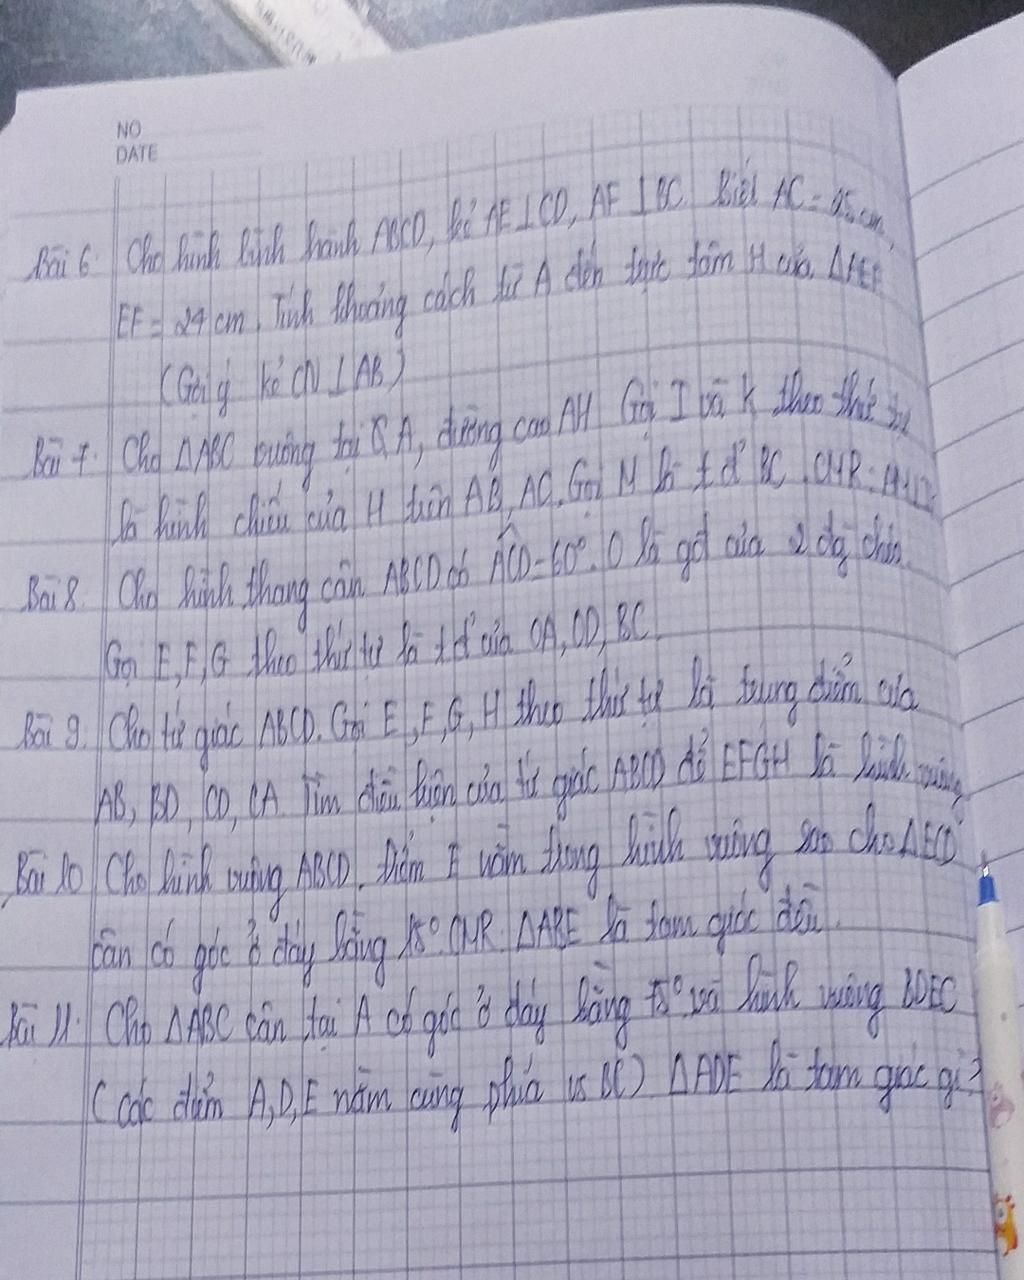 NO
DATE
Bài 6. Cho hình bình hành ABCD, kẻ AE⊥CD, AF⊥BC Biết AC = 25 cm,
EF = 24 cm. Tính khoảng cách từ A đến trực tâm H của ΔAEF
(Gợi ý kẻ CN⊥AB)
Bài 7. Cho ΔABC vuông tại A, đường cao AH Gọi I và K theo thứ tự
là hình chiếu của H trên AB, AC. Gọi M là t đ' BC. CMR:
Bài 8. Cho hình thang cân ABCD có ACD=60°. O là gđ của 2 đg chéo.
Gọi E, F, G theo thứ tự là t đ' của OA, OD, BC
Bài 9. Cho tứ giác ABCD. Gọi E, F, G, H theo thứ tự là trung điểm của
AB, BD, CD, CA. Tìm điều kiện của tứ giác ABCD để EFGH là hình vuông
Bài 10 Cho hình vuông ABCD. Điểm E nằm trong hình vuông sao cho ΔECD
cân có góc ở đáy bằng 15° CMR. ΔABE là tam giác đều.
Bài 11. Cho ΔABC cân tại A có góc ở đáy bằng 75° và hình vuông BDEC
(các điểm A, D, E nằm cùng phía vs BC) ΔADE là tam giác gì?